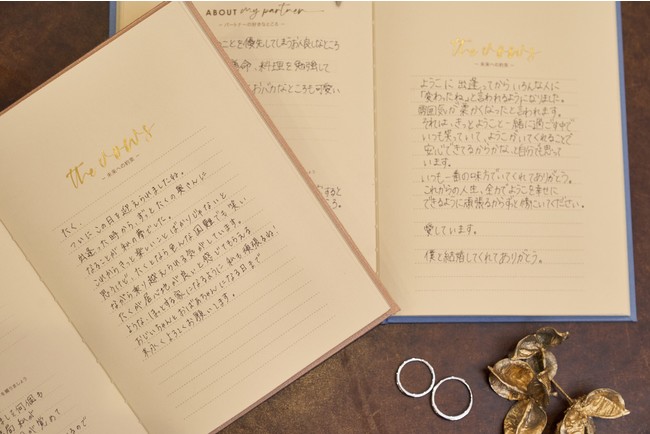 the vows
― 未来への約束 ―
たく、
ついにこの日を迎えられましたね。
出逢った時から、ずっとたくの奥さんに
なることが私の夢でした。
これからきっと楽しいことばかりじゃないと
思うけど、たくとなら色んな困難でも笑い
ながら乗り越えられる気がしています。
たくが居心地が良いと感じてもらえる
ような、ほっとする家になるように私も頑張るね!
おじいちゃんとおばあちゃんになる日まで
末永くよろしくお願いします。
ABOUT my partner
― パートナーの好きなところ ―
ことを優先してしまうお人良しなところ
命、料理を勉強して
おバカなところも可愛い
するところ
the vows
― 未来への約束 ―
ようこに出逢ってからいろんな人に
「変わったね」と言われるようになりました。
雰囲気が柔かくなったと言われます。
それは、きっとようこと一緒に過ごす中で
いつも笑っていて、ようこがいてくれることで
安心できてるからかな、と自分でも思って
います。
いつも一番の味方でいてくれてありがとう。
これからの人生、全力でようこを幸せに
できるように頑張るからずっと傍にいてください。
愛しています。
僕と結婚してくれてありがとう。